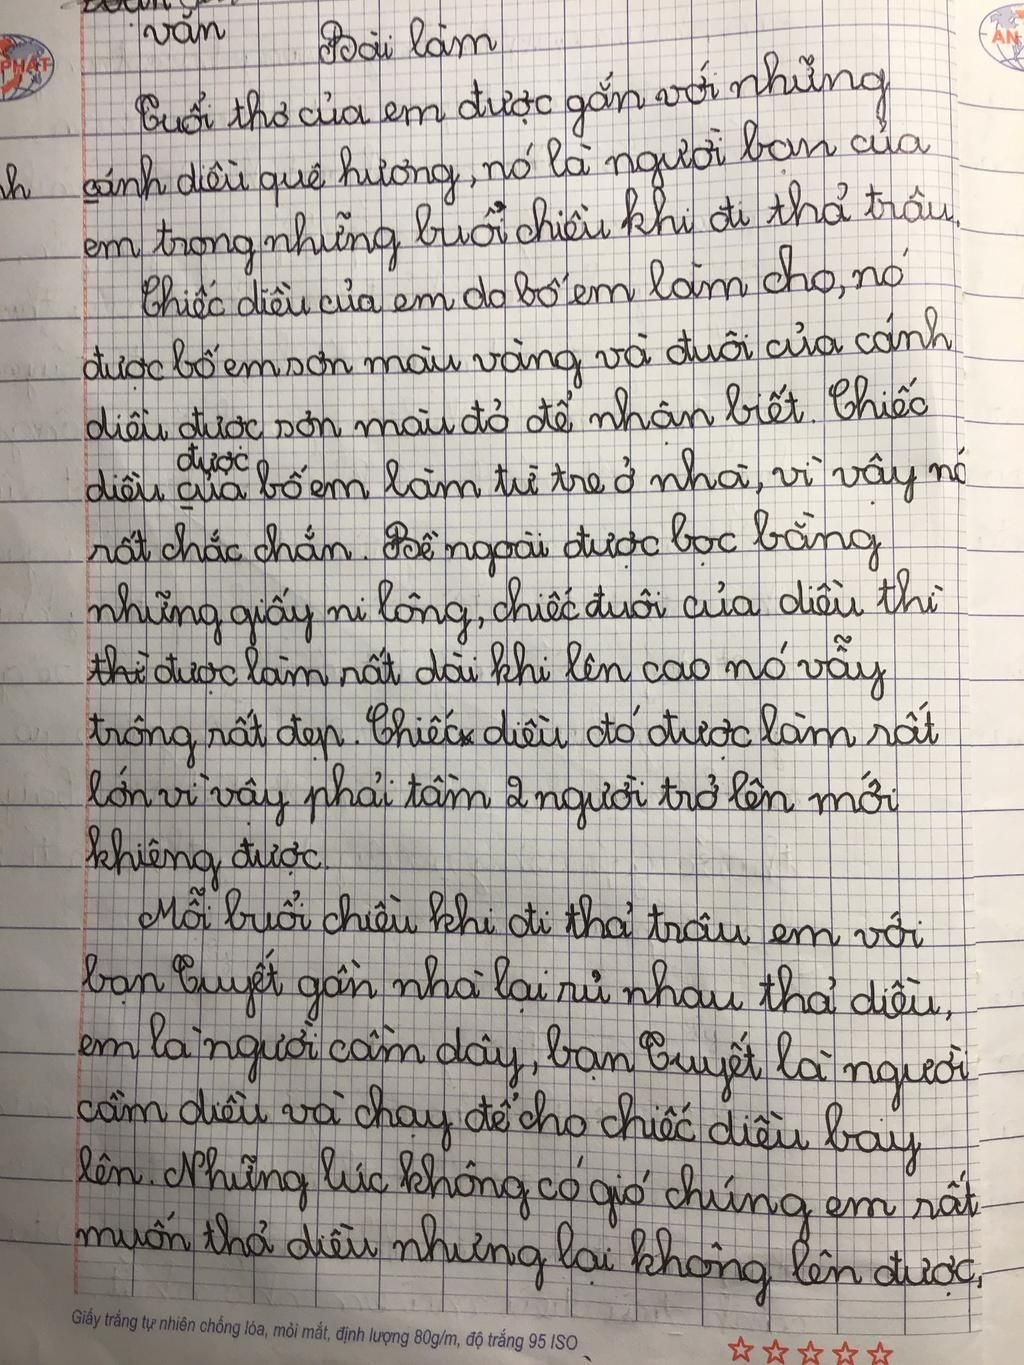 văn
Bài làm
PHÁT
AN
Tuổi thơ của em được gắn với những
cánh diều quê hương, nó là người bạn của
em trong những buổi chiều khi đi thả trâu.
Chiếc diều của em do bố em làm cho, nó
được bố em sơn màu vàng và đuôi của cánh
diều được sơn màu đỏ để nhận biết. Chiếc
được
diều của bố em làm từ tre ở nhà, vì vậy nó
rất chắc chắn. Bề ngoài được bọc bằng
những giấy ni lông, chiếc đuôi của diều thì
thì được làm rất dài khi lên cao nó vẫy
trông rất đẹp. Chiếc diều đó được làm rất
lớn vì vậy phải tầm 2 người trở lên mới
khiêng được.
Mỗi buổi chiều khi đi thả trâu em với
bạn Tuyết gần nhà lại rủ nhau thả diều,
em là người cầm dây, bạn Tuyết là người
cầm diều và chạy để cho chiếc diều bay
lên. Những lúc không có gió chúng em rất
muốn thả diều nhưng lại không lên được,
Giấy trắng tự nhiên chống lóa, mỏi mắt, định lượng 80g/m, độ trắng 95 ISO